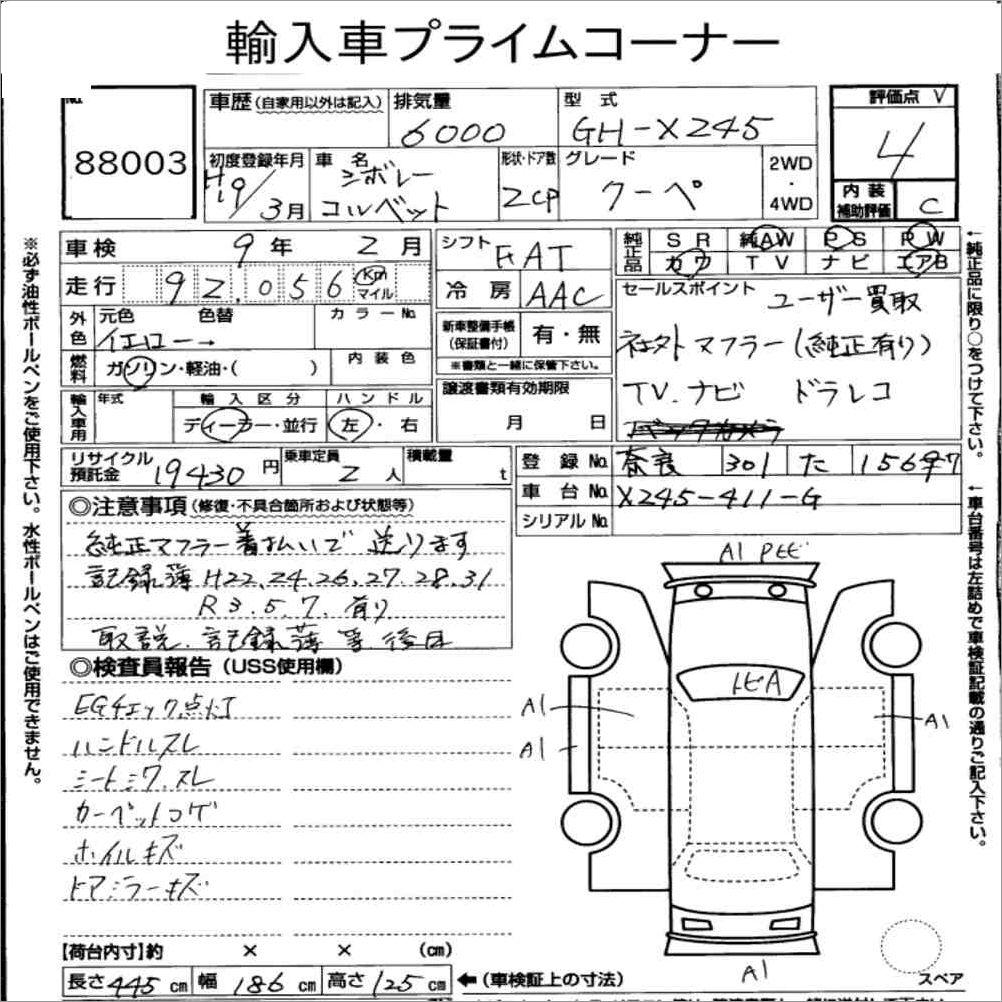 輸入車プライムコーナー
88003
車歴(自家用以外は記入)
排気量
6000
型式
GH-X245
評価点
4
内装補助評価
C
初度登録年月
H19/3月
車名
シボレー
コルベット
形状・ドア数
2CP
グレード
クーペ
2WD
・
4WD
車検 9年 2月
シフト FAT
純正品
SR 純AW PS PW
カワ TV ナビ エアB
走行 92,056 Km マイル
冷房 AAC
セールスポイント
ユーザー買取
社外マフラー(純正有り)
TV.ナビ ドラレコ
外色
元色 色替
イエロー→
カラーNo.
新車整備手帳(保証書付) 有・無
※書類と一緒に保管下さい。
燃料 ガソリン・軽油・( )
内装色
譲渡書類有効期限
月 日
輸入車用
年式
輸入区分
ディーラー・並行
ハンドル
左・右
リサイクル預託金 19430円
乗車定員 2人
積載量 t
登録No. 奈良 301 た
車台No. X245-411-G
シリアルNo.
◎注意事項(修復・不具合箇所および状態等)
純正マフラー着払いで送ります
記録簿H22.24.26.27.28.31
R3.5.7.有り
取説.記録簿等後日
◎検査員報告(USS使用欄)
EGチェック点灯
ハンドルスレ
シートシワ.スレ
カーペットコゲ
ホイルキズ
ドアミラーキズ
A1 Pヒビ
トビA
A1
A1
A1
A1
スペア
【荷台内寸】約 × × (cm)
長さ445cm 幅186cm 高さ125cm
←(車検証上の寸法)
※必ず油性ボールペンをご使用下さい。水性ボールペンはご使用できません。
←純正品に限り○をつけて下さい。
←車台番号は左詰めで車検証記載の通りご記入下さい。